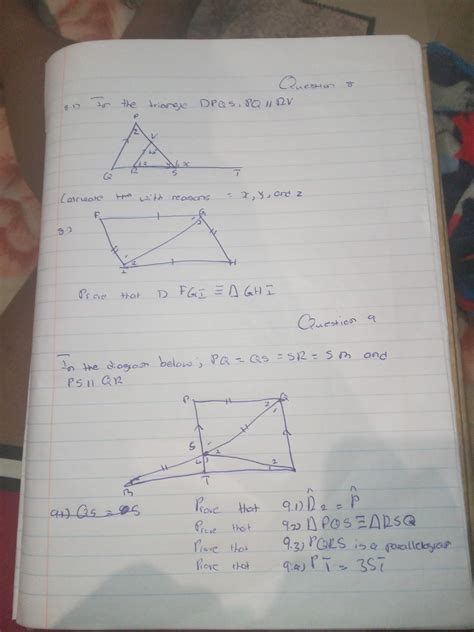 Question 8
8.1) In the triangle DPQS, PQ || RV
P
Z
V
Q
R
S
X
T
Calculate with reasons = x, y, and z
8.2)
F
G
I
2
H
Prove that D FGI ≡ Δ GHI
Question 9
In the diagram below; PQ = QS = SR = SM and
PS || QR
P
Q
2
S
2
T
QS =
Prove that 9.1) R̂2 = P̂
Prove that 9.2) ΔPQS ≡ ΔRSQ
Prove that 9.3) PQRS is a parallelogram
Prove that 9.4) PT = 3ST